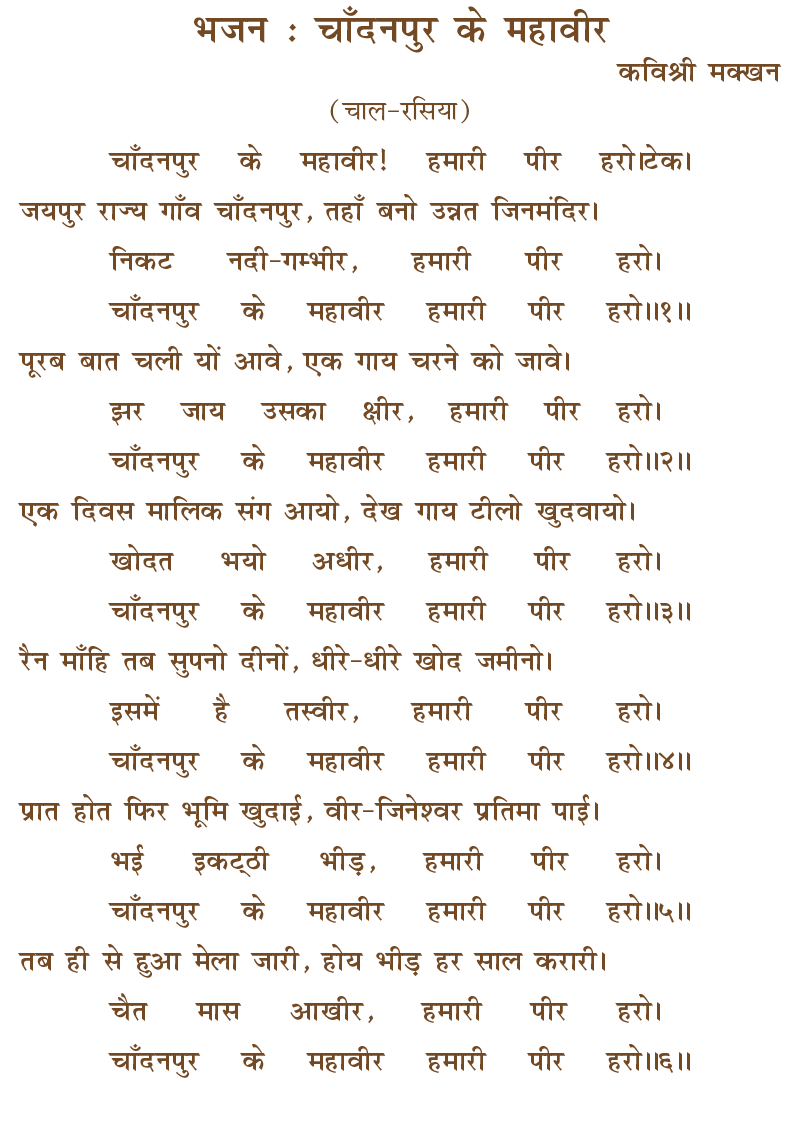 भजन : चाँदनपुर के महावीर
कविश्री मक्खन
(चाल-रसिया)
चाँदनपुर के महावीर! हमारी पीर हरो।टेक।
जयपुर राज्य गाँव चाँदनपुर, तहाँ बनो उन्नत जिनमंदिर।
निकट नदी-गम्भीर, हमारी पीर हरो।
चाँदनपुर के महावीर हमारी पीर हरो॥१॥
पूरब बात चली यों आवे, एक गाय चरने को जावे।
झर जाय उसका क्षीर, हमारी पीर हरो।
चाँदनपुर के महावीर हमारी पीर हरो॥२॥
एक दिवस मालिक संग आयो, देख गाय टीलो खुदवायो।
खोदत भयो अधीर, हमारी पीर हरो।
चाँदनपुर के महावीर हमारी पीर हरो॥३॥
रैन माँहि तब सुपनो दीनों, धीरे-धीरे खोद जमीनो।
इसमें है तस्वीर, हमारी पीर हरो।
चाँदनपुर के महावीर हमारी पीर हरो॥४॥
प्रात होत फिर भूमि खुदाई, वीर-जिनेश्वर प्रतिमा पाई।
भई इकट्ठी भीड़, हमारी पीर हरो।
चाँदनपुर के महावीर हमारी पीर हरो॥५॥
तब ही से हुआ मेला जारी, होय भीड़ हर साल करारी।
चैत मास आखीर, हमारी पीर हरो।
चाँदनपुर के महावीर हमारी पीर हरो॥६॥